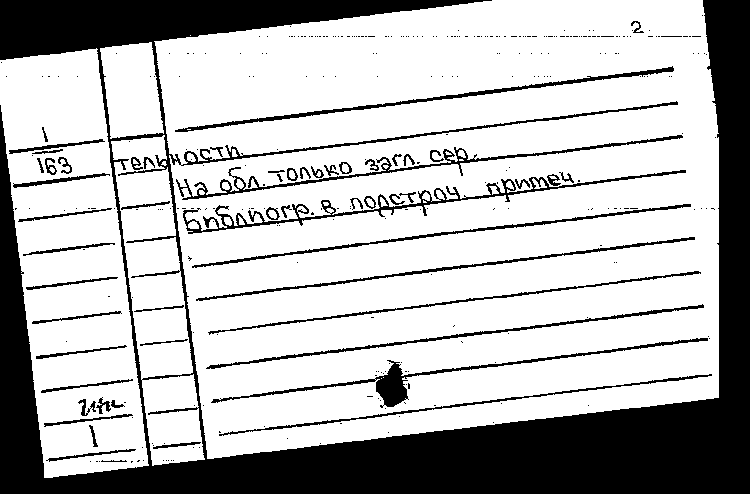 2
1
163 тельности.
На обл. только загл. сер.
Библиогр. в подстроч. примеч.
1